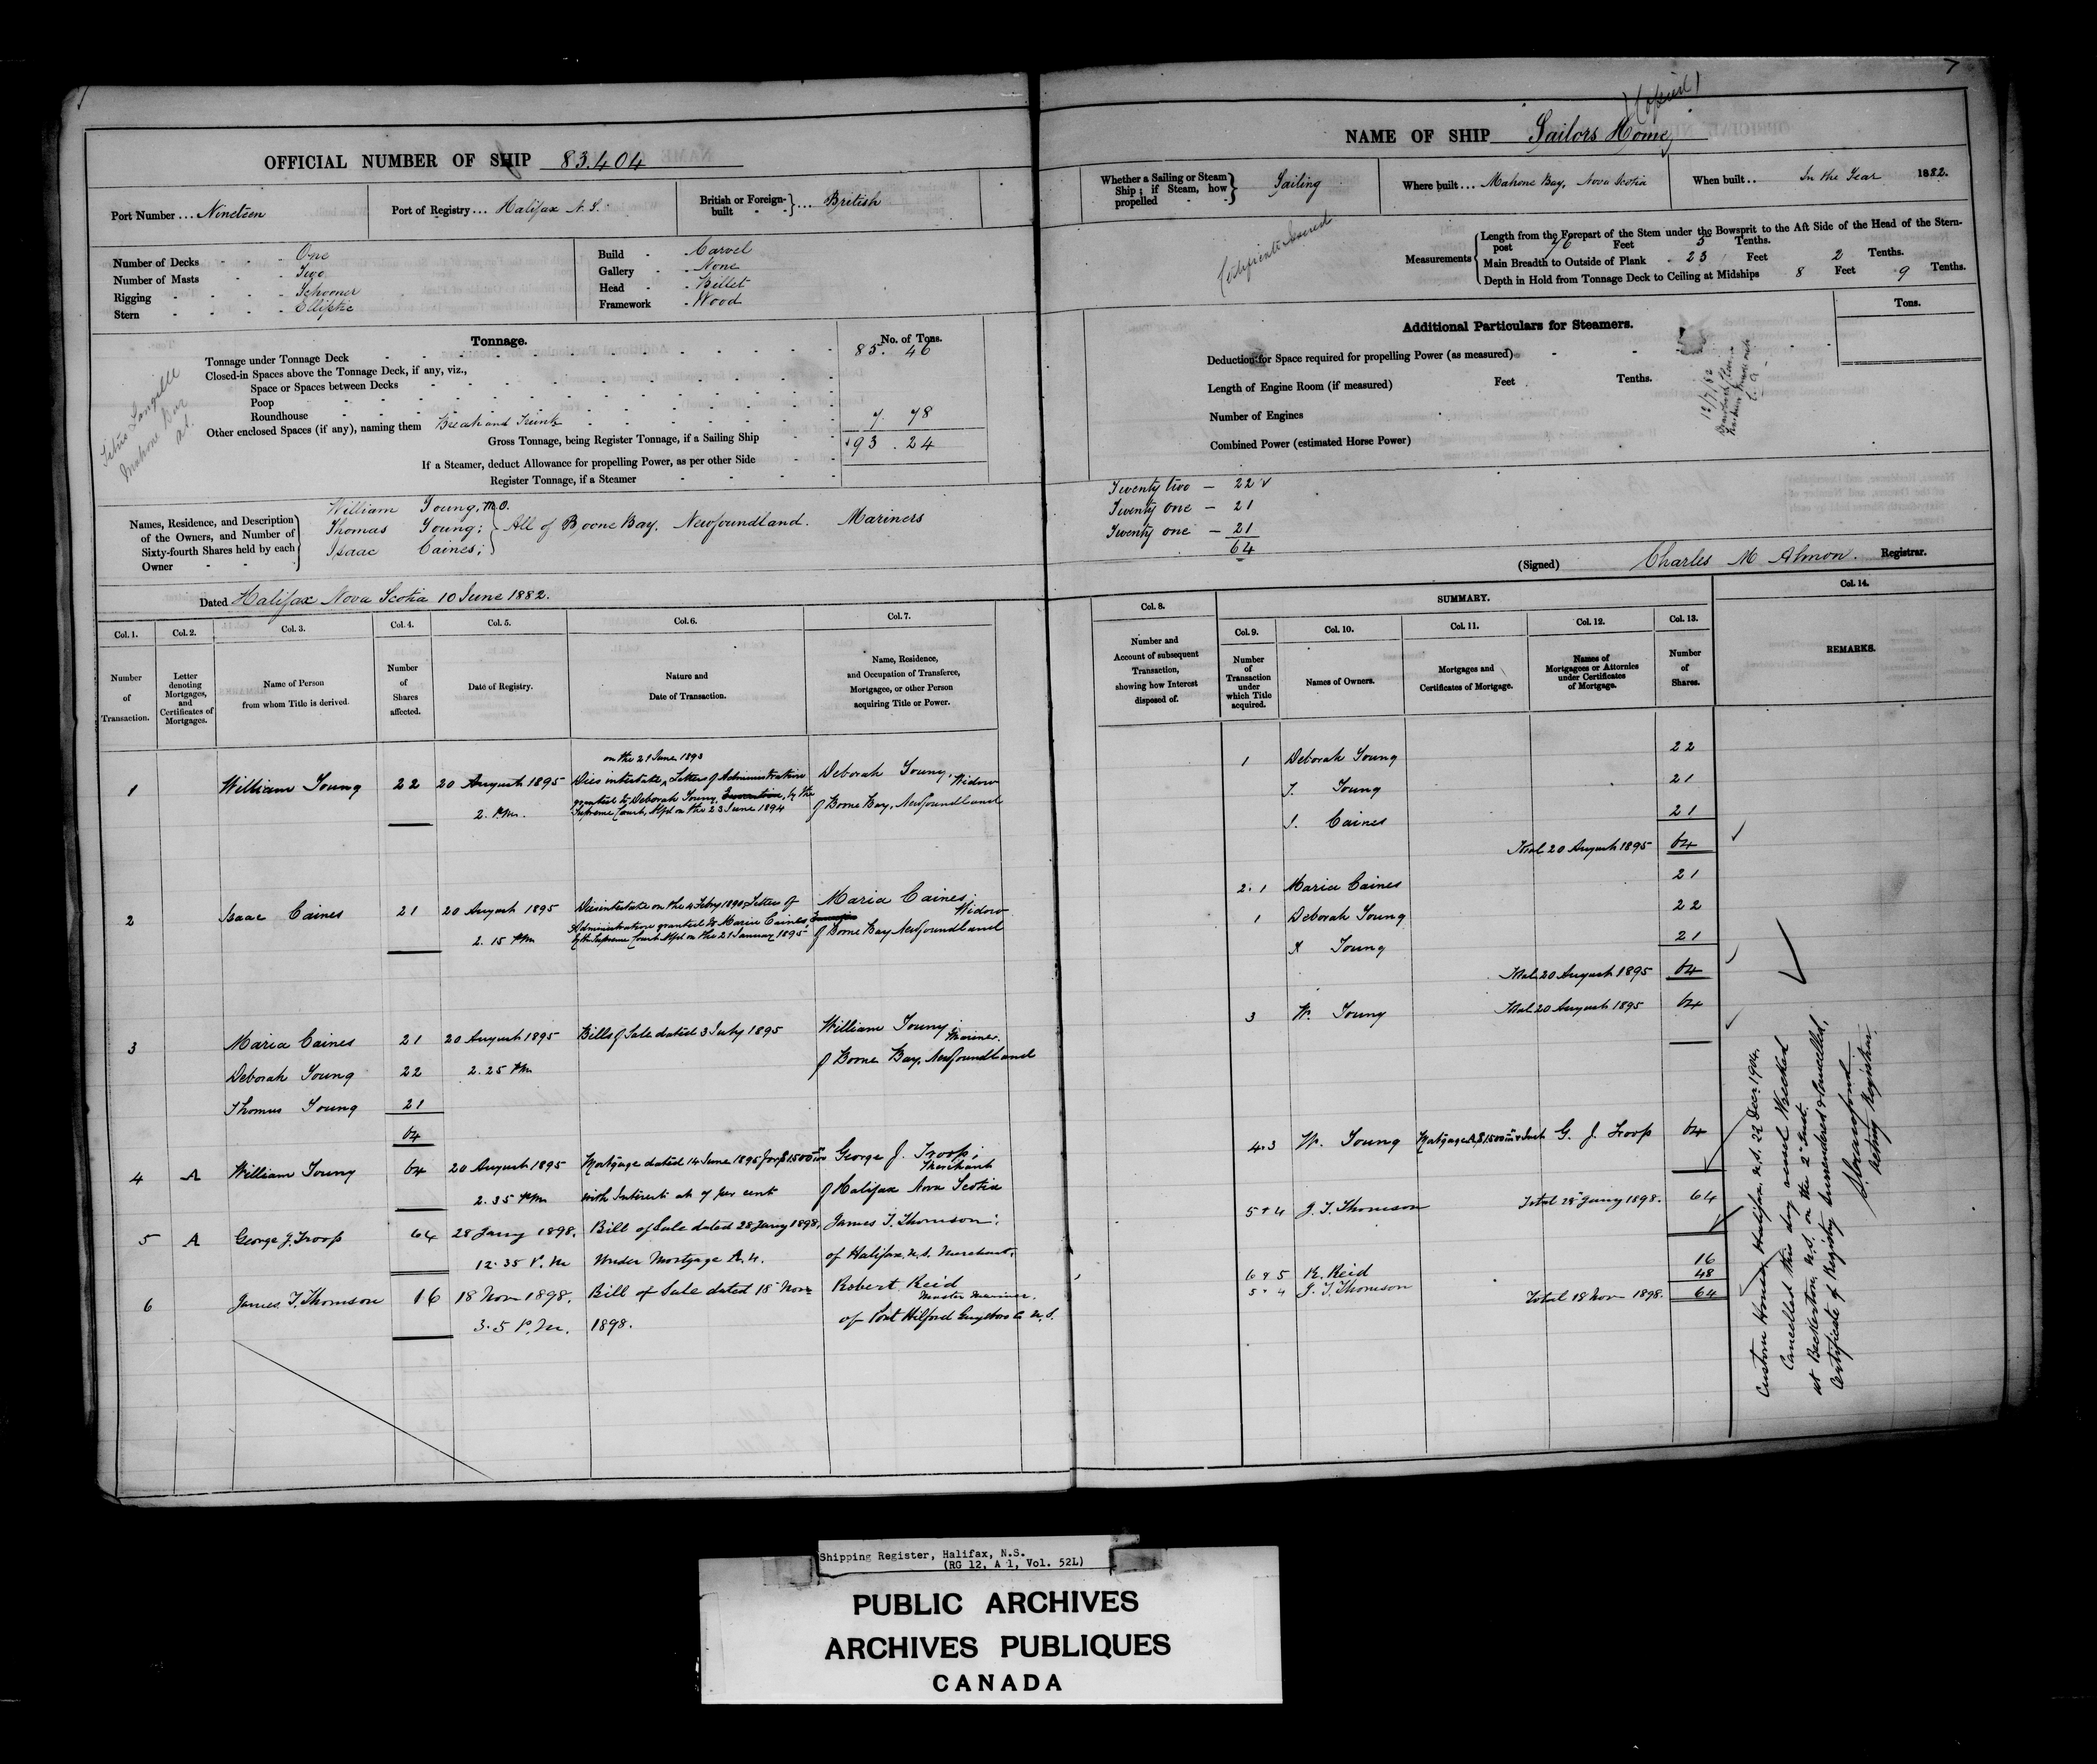 (Copied)
7
OFFICIAL NUMBER OF SHIP 83.404
NAME OF SHIP Sailors Home
Port Number ... Nineteen
Port of Registry ... Halifax N.S.
British or Foreign-built }... British
Whether a Sailing or Steam Ship; if Steam, how propelled } Sailing
Where built ... Mahone Bay, Nova Scotia
When built .. In the Year 1882.
Number of Decks - One
Number of Masts - Two
Rigging - Schooner
Stern - Elliptic
Build - Carvel
Gallery - None
Head - Billet
Framework - Wood
Certificate Issued
Measurements
Length from the Forepart of the Stem under the Bowsprit to the Aft Side of the Head of the Stern-post 76 Feet 5 Tenths.
Main Breadth to Outside of Plank - 23 Feet 2 Tenths.
Depth in Hold from Tonnage Deck to Ceiling at Midships 8 Feet 9 Tenths.
Tonnage.
No. of Tons.
Tonnage under Tonnage Deck 85. 46
Closed-in Spaces above the Tonnage Deck, if any, viz.,
Space or Spaces between Decks
Poop
Roundhouse
Other enclosed Spaces (if any), naming them Break and Trunk 7. 78
Gross Tonnage, being Register Tonnage, if a Sailing Ship 93. 24
If a Steamer, deduct Allowance for propelling Power, as per other Side
Register Tonnage, if a Steamer
Titus Langille
Mahone Bay
Additional Particulars for Steamers.
Tons.
Deduction for Space required for propelling Power (as measured)
Length of Engine Room (if measured) Feet Tenths.
Number of Engines
Combined Power (estimated Horse Power)
12/7/82
Names, Residence, and Description of the Owners, and Number of Sixty-fourth Shares held by each Owner
William Young, M.O.
Thomas Young; } All of Boone Bay, Newfoundland. Mariners
Isaac Caines;
Twenty two — 22
Twenty one — 21
Twenty one — 21
64
Dated Halifax Nova Scotia 10 June 1882.
(Signed) Charles M Almon. Registrar.
Col. 1. Number of Transaction.
Col. 2. Letter denoting Mortgages, and Certificates of Mortgages.
Col. 3. Name of Person from whom Title is derived.
Col. 4. Number of Shares affected.
Col. 5. Date of Registry.
Col. 6. Nature and Date of Transaction.
Col. 7. Name, Residence, and Occupation of Transferee, Mortgagee, or other Person acquiring Title or Power.
Col. 8. Number and Account of subsequent Transaction, showing how Interest disposed of.
SUMMARY.
Col. 9. Number of Transaction under which Title acquired.
Col. 10. Names of Owners.
Col. 11. Mortgages and Certificates of Mortgage.
Col. 12. Names of Mortgagees or Attornies under Certificates of Mortgage.
Col. 13. Number of Shares.
Col. 14. REMARKS.
on the 21 June 1893
1 William Young 22 20 August 1895 Dies intestate, Letters of Administration Deborah Young, Widow
2. P.M. granted to Deborah Young, by the Supreme Court, Nfld on the 23 June 1894 of Bonne Bay, Newfoundland
2 Isaac Caines 21 20 August 1895 Dies intestate on the 4 Febry 1890, Letters of Maria Caines, Widow
2. 15 PM Administration granted to Maria Caines, by the Supreme Court Nfld on the 21 January 1895 of Bonne Bay Newfoundland
3 Maria Caines 21 20 August 1895 Bills of Sale dated 3 July 1895 William Young, Mariner.
Deborah Young 22 2. 25 PM of Bonne Bay, Newfoundland
Thomas Young 21
64
4 A William Young 64 20 August 1895 Mortgage dated 14 June 1895 for $1500 George J. Troop; Merchant
2. 35 PM with Interest at 7 per cent of Halifax Nova Scotia
5 A George J. Troop 64 28 Jany 1898. Bill of Sale dated 28 Jany 1898, James T. Thomson;
12. 35 P.M Under Mortgage A. 4. of Halifax N.S. Merchant.
6 James T. Thomson 16 18 Nov 1898. Bill of Sale dated 18 Novr Robert Reid Master Mariner.
3. 5 P.M. 1898. of Port Hilford Guysboro Co N.S.
1 Deborah Young 22
T. Young 21
I. Caines 21
Total 20 August 1895 64
2. 1 Maria Caines 21
1 Deborah Young 22
Young 21
Total 20 August 1895 64
3 W. Young Total 20 August 1895 64
4.3 W. Young Mortgage A, $1500 & Int G. J. Troop 64
5 + 4 J. T. Thomson Total 28 Jany 1898. 64
6 + 5 R. Reid 16
5 + 4 J. T. Thomson 48
Total 18 Nov 1898. 64
Custom House Halifax, N.S. 22 Decr 1904.
Cancelled this day vessel Wrecked
at Beckerton, N.S. on the 2nd Inst.
Certificate of Registry surrendered & cancelled,
S. Crawford
Acting Registrar.
Shipping Register, Halifax, N.S.
(RG 12, A 1, Vol. 52L)
PUBLIC ARCHIVES
ARCHIVES PUBLIQUES
CANADA